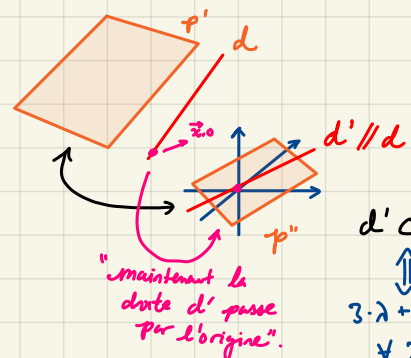 p'
d
x.o
d' // d
p"
d' C
"maintenant la
droite d' passe
par l'origine".
3·λ+
∀